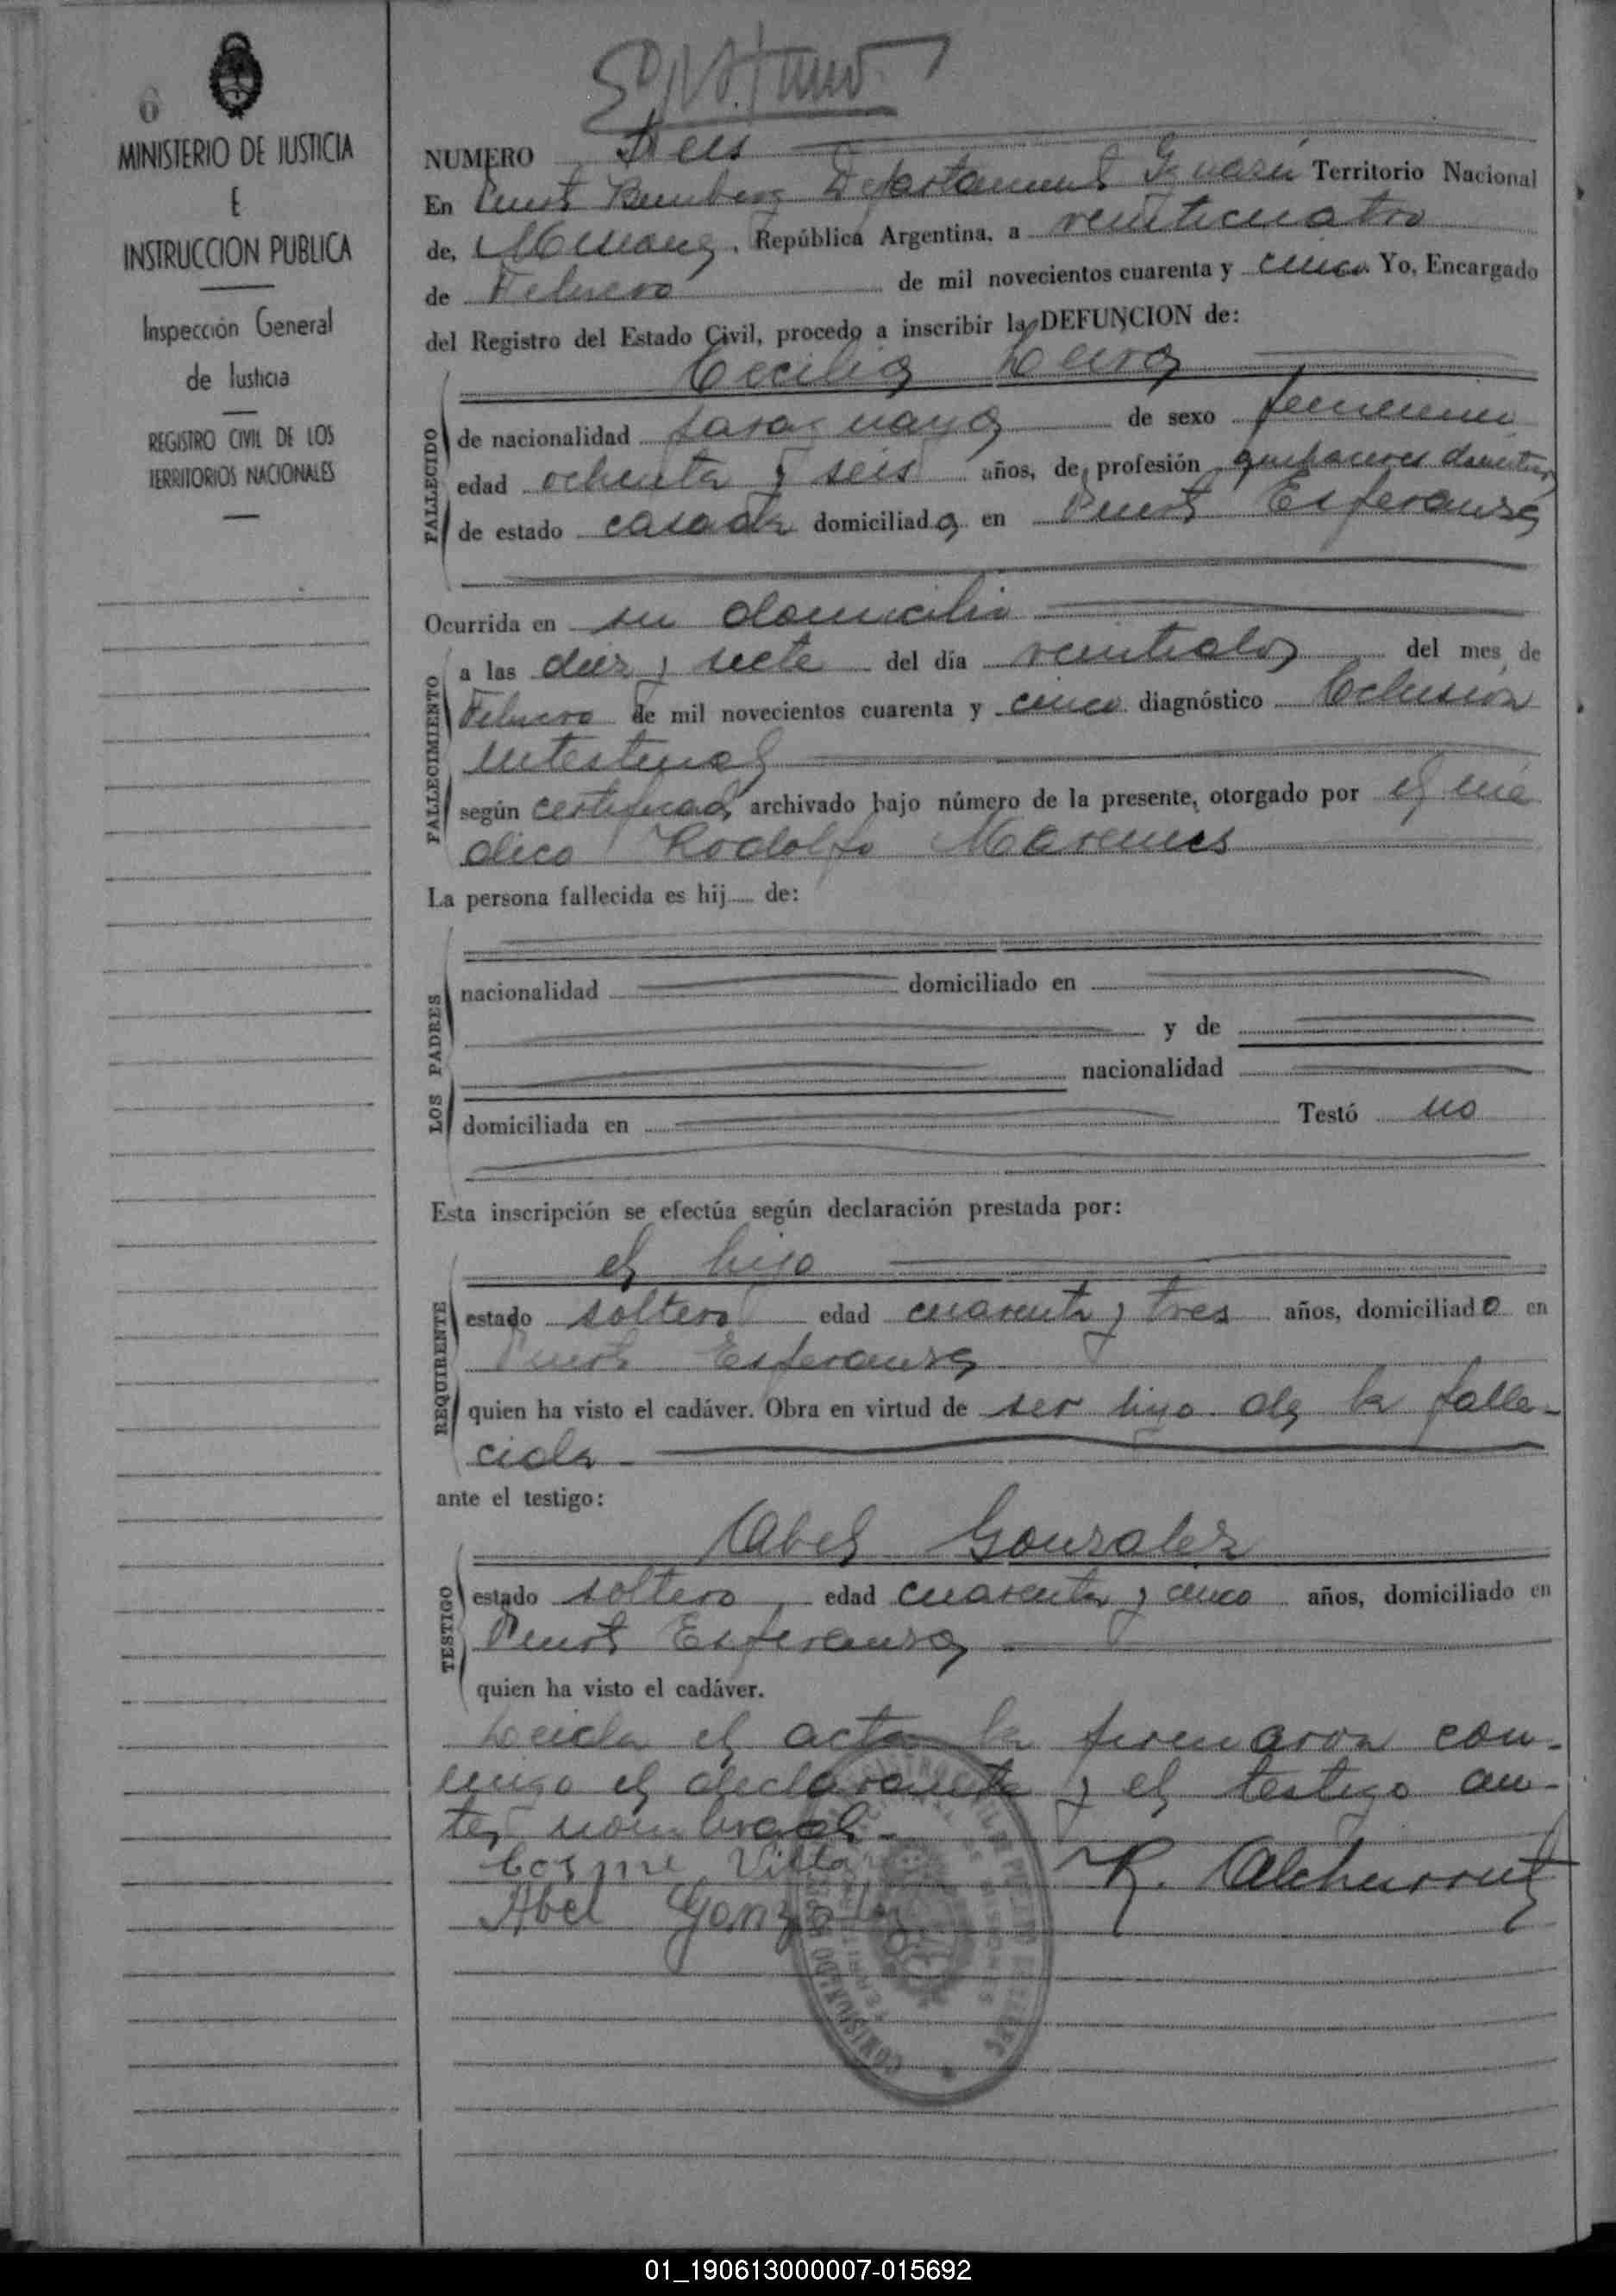 6
MINISTERIO DE JUSTICIA
E
INSTRUCCION PUBLICA
Inspección General
de Justicia
REGISTRO CIVIL DE LOS
TERRITORIOS NACIONALES
NUMERO
En Puerto Bemberg Departamento Iguazú Territorio Nacional
de, Misiones, República Argentina, a veinticuatro
de Febrero de mil novecientos cuarenta y cinco Yo, Encargado
del Registro del Estado Civil, procedo a inscribir la DEFUNCION de:
Cecilia
FALLECIDO
de nacionalidad paraguaya de sexo femenino
edad ochenta y seis años, de profesión quehaceres domesticos
de estado casada domiciliada en Puerto Esperanza
Ocurrida en su domicilio
FALLECIMIENTO
a las diez y siete del día veintidos del mes de
Febrero de mil novecientos cuarenta y cinco diagnóstico Oclusión
intestinal
según certificado archivado bajo número de la presente, otorgado por el mé
dico Rodolfo
La persona fallecida es hij..... de:
LOS PADRES
nacionalidad domiciliado en
y de
nacionalidad
domiciliada en Testó no
Esta inscripción se efectúa según declaración prestada por:
el hijo
REQUIRENTE
estado soltero edad cuarenta y tres años, domiciliado en
Puerto Esperanza
quien ha visto el cadáver. Obra en virtud de ser hijo de la falle-
cida
ante el testigo:
Abel Gonzalez
TESTIGO
estado soltero edad cuarenta y cinco años, domiciliado en
Puerto Esperanza
quien ha visto el cadáver.
Leida el acta la firmaron con-
migo el declarante y el testigo an-
tes nombrado.-
Cosme
Abel Gonzalez
01_190613000007-015692